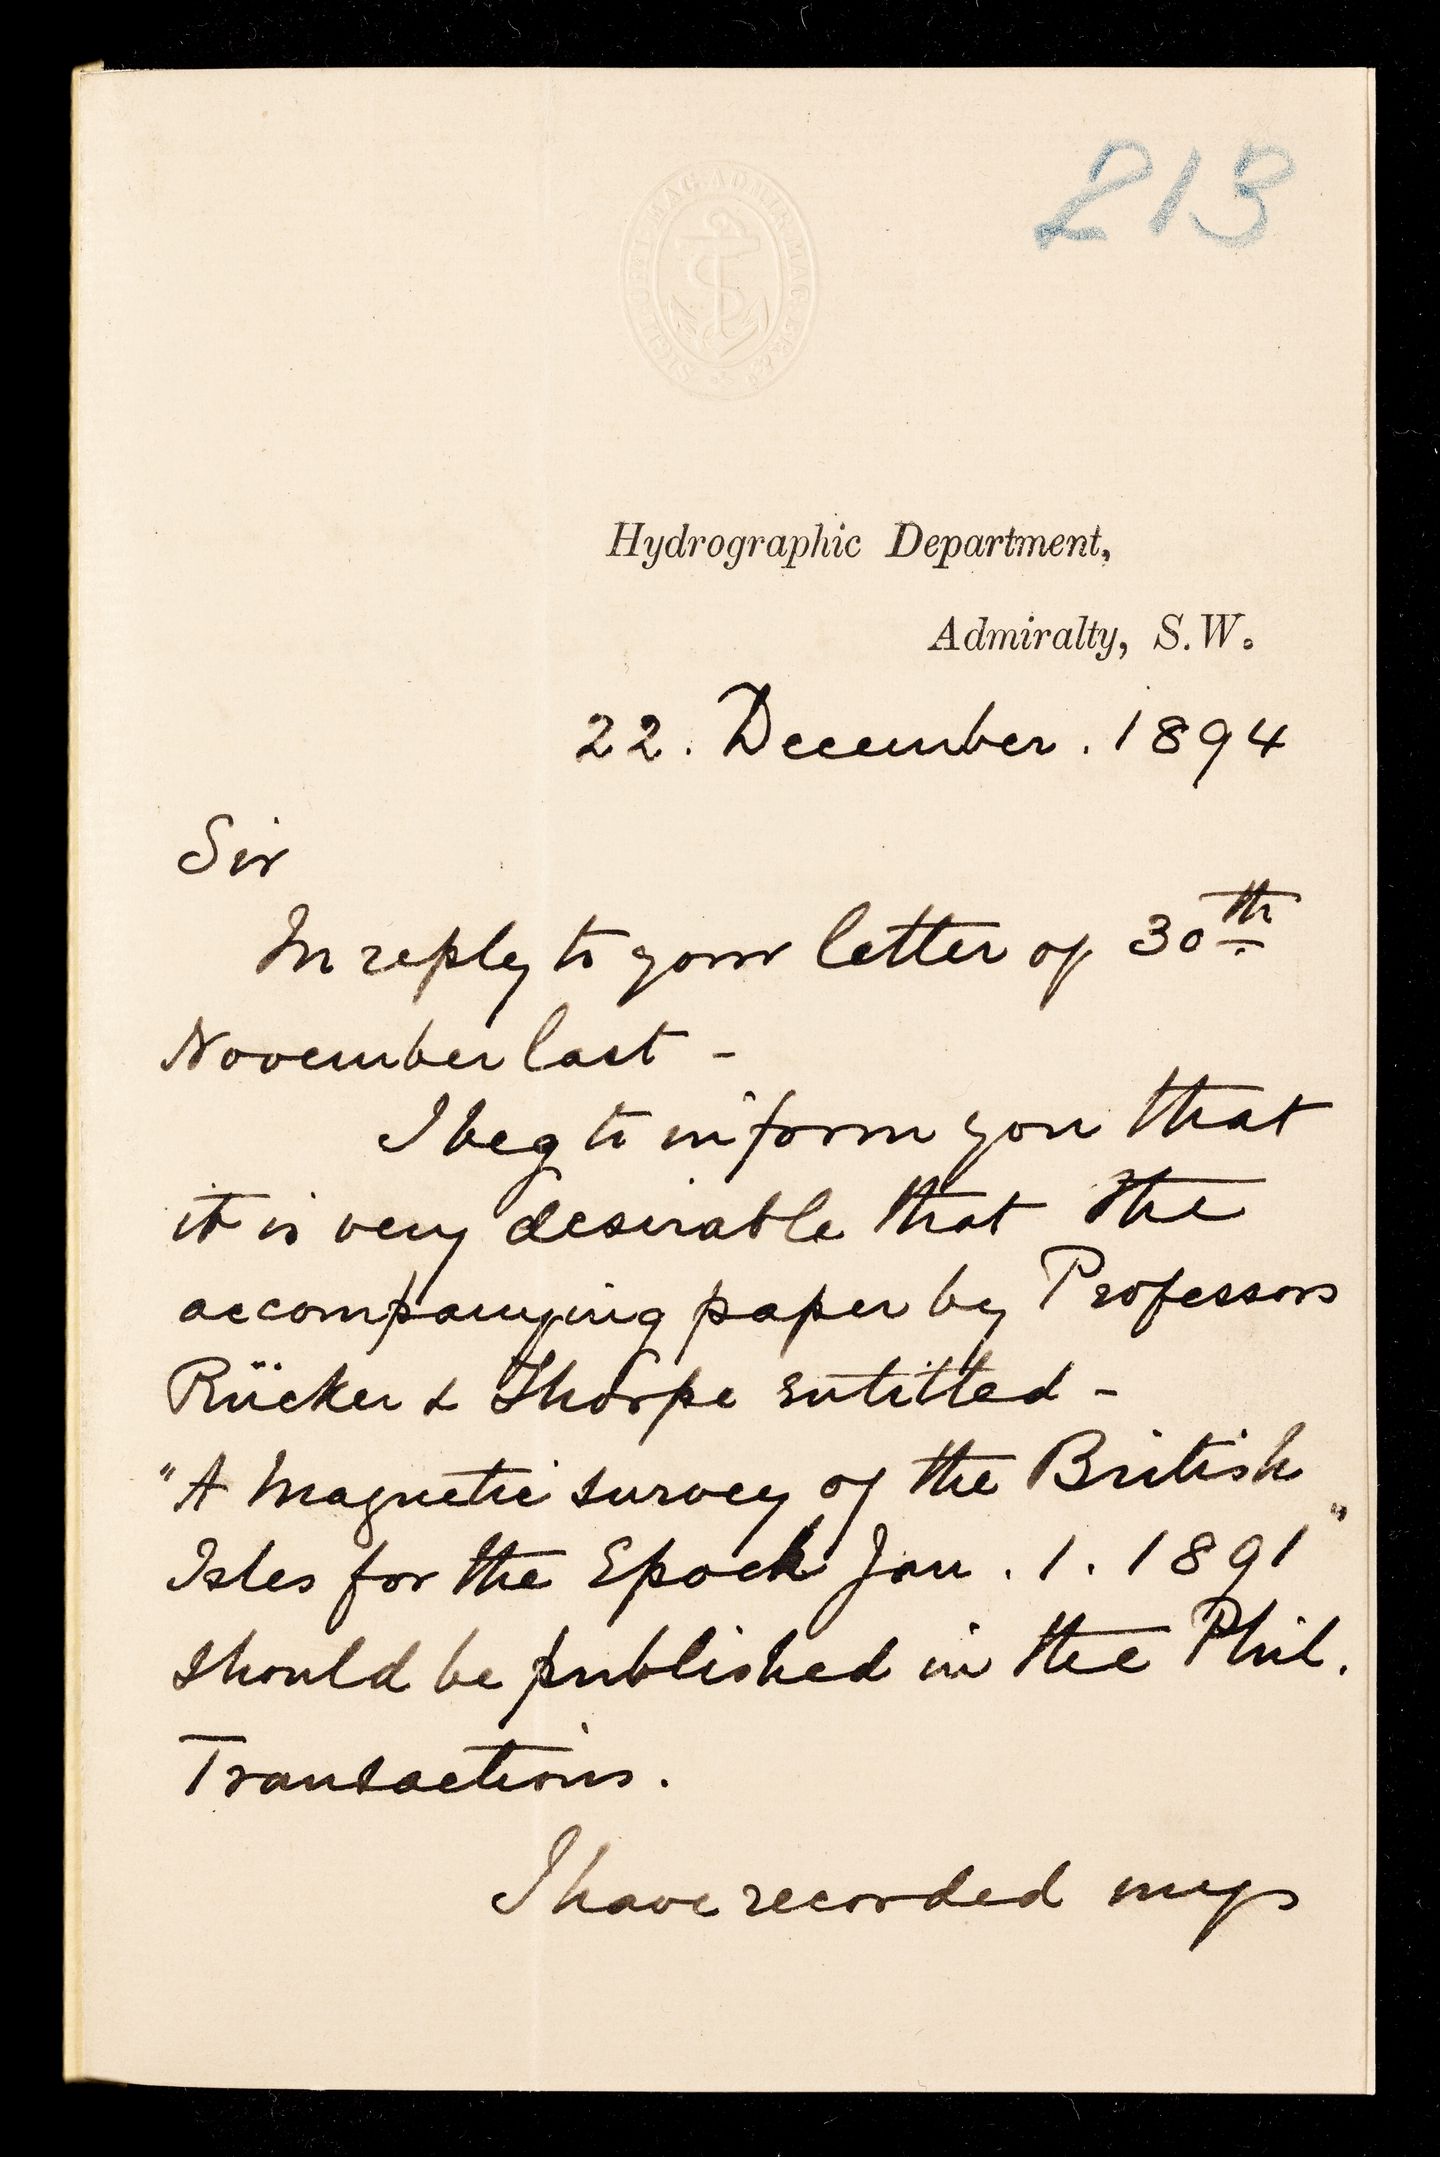 213
Hydrographic Department,
Admiralty, S.W.
22. December. 1894
Sir
In reply to your letter of 30th
November last -
I beg to inform you that
it is very desirable that the
accompanying paper by Professors
Rücker & Thorpe entitled -
"A Magnetic survey of the British
Isles for the Epoch Jan. 1. 1891"
should be published in the Phil.
Transactions.
I have recorded my